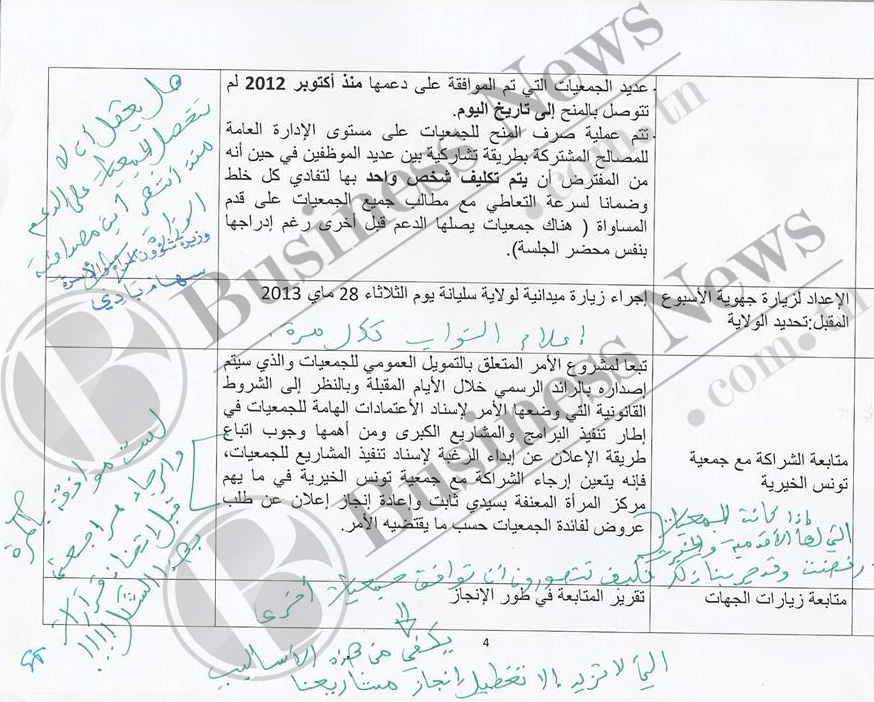 عديد الجمعيات التي تم الموافقة على دعمها منذ أكتوبر 2012 لم
تتوصل بالمنح إلى تاريخ اليوم.
تتم عملية صرف المنح للجمعيات على مستوى الإدارة العامة
للمصالح المشتركة بطريقة تشاركية بين عديد الموظفين في حين أنه
من المفترض أن يتم تكليف شخص واحد بها لتفادي كل خلط
وضمانا لسرعة التعاطي مع مطالب جميع الجمعيات على قدم
المساواة ( هناك جمعيات يصلها الدعم قبل أخرى رغم إدراجها
بنفس محضر الجلسة).
هل يعقل أن لا
تتحصل الجمعيات على الدعم
منذ أشهر أين مصداقية
الوزارة
وزيرة شؤون المرأة والأسرة
سهام بادي
الإعداد لزيارة جهوية الأسبوع
المقبل:تحديد الولاية
إجراء زيارة ميدانية لولاية سليانة يوم الثلاثاء 28 ماي 2013
إعلام النواب ككل مرة.
متابعة الشراكة مع جمعية
تونس الخيرية
تبعا لمشروع الأمر المتعلق بالتمويل العمومي للجمعيات والذي سيتم
إصداره بالرائد الرسمي خلال الأيام المقبلة وبالنظر إلى الشروط
القانونية التي وضعها الأمر لإسناد الأعتمادات الهامة للجمعيات في
إطار تنفيذ البرامج والمشاريع الكبرى ومن أهمها وجوب اتباع
طريقة الإعلان عن إبداء الرغبة لإسناد تنفيذ المشاريع للجمعيات،
فإنه يتعين إرجاء الشراكة مع جمعية تونس الخيرية في ما يهم
مركز المرأة المعنفة بسيدي ثابت وإعادة إنجاز إعلان عن طلب
عروض لفائدة الجمعيات حسب ما يقتضيه الأمر.
لست موافقة
والرجاء مراجعتي
قبل اتخاذ قرارات
بهذا الشكل !!!!
إذا كانت الجمعيات
التي لها الأقدمية
رفضت وقد فكيف تتصورون أن توافق جمعيات أخرى
متابعة زيارات الجهات
تقرير المتابعة في طور الإنجاز
4
يكفي من هذه الأساليب
التي لا تزيد إلا تعطيل إنجاز مشاريعنا
Business News
.com.tn
Business News
.com.tn